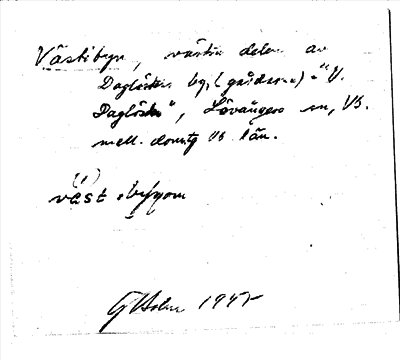 Västibyn, västra delen av
Daglösten by, (gårdarna) "V.
Daglösten", Lövångers sn, Vb.
mell. domsg Vb län.
väst ibyṇom
G Holm 1947